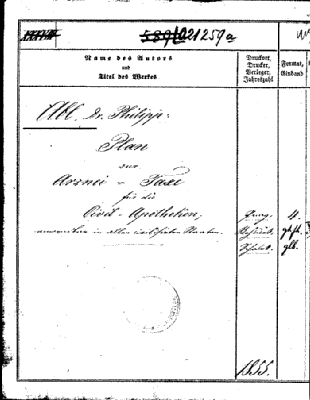 589/0 21259a
Name des Autors
und
Titel des Werkes
Druckort,
Drucker,
Verleger,
Jahrzahl
Format,
Einband
Abl, Dr. Philipp:
Plan
zur
Arznei-Taxe
für die
Civil-Apotheken,
in allen Staaten.
Prag.
4.
1855.